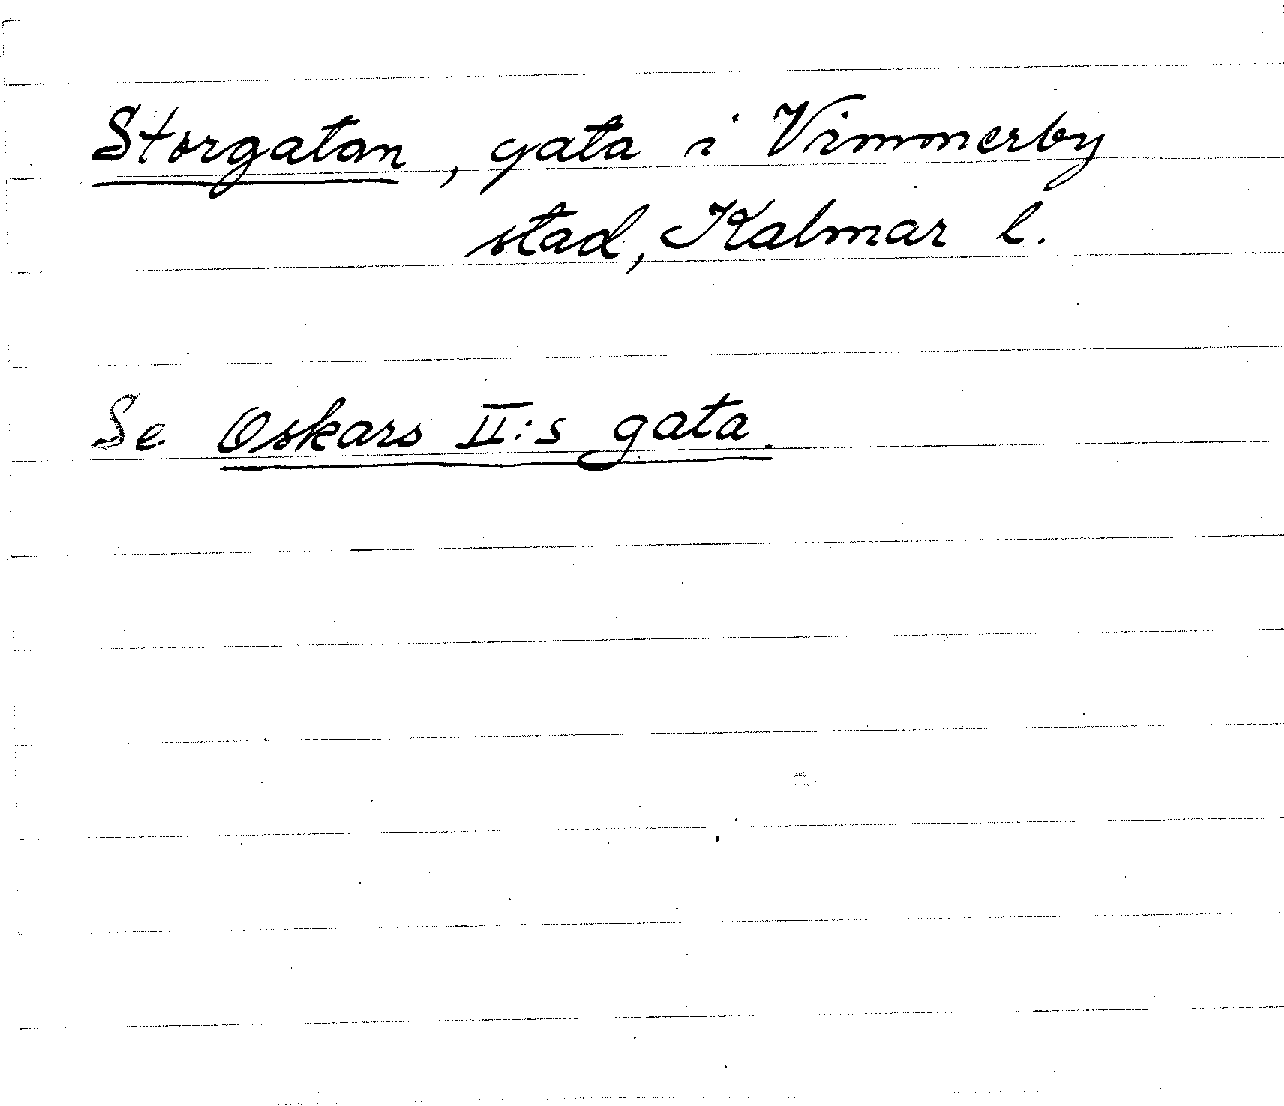 Storgatan, gata i Vimmerby
stad, Kalmar l.
Se Oskars II:s gata.